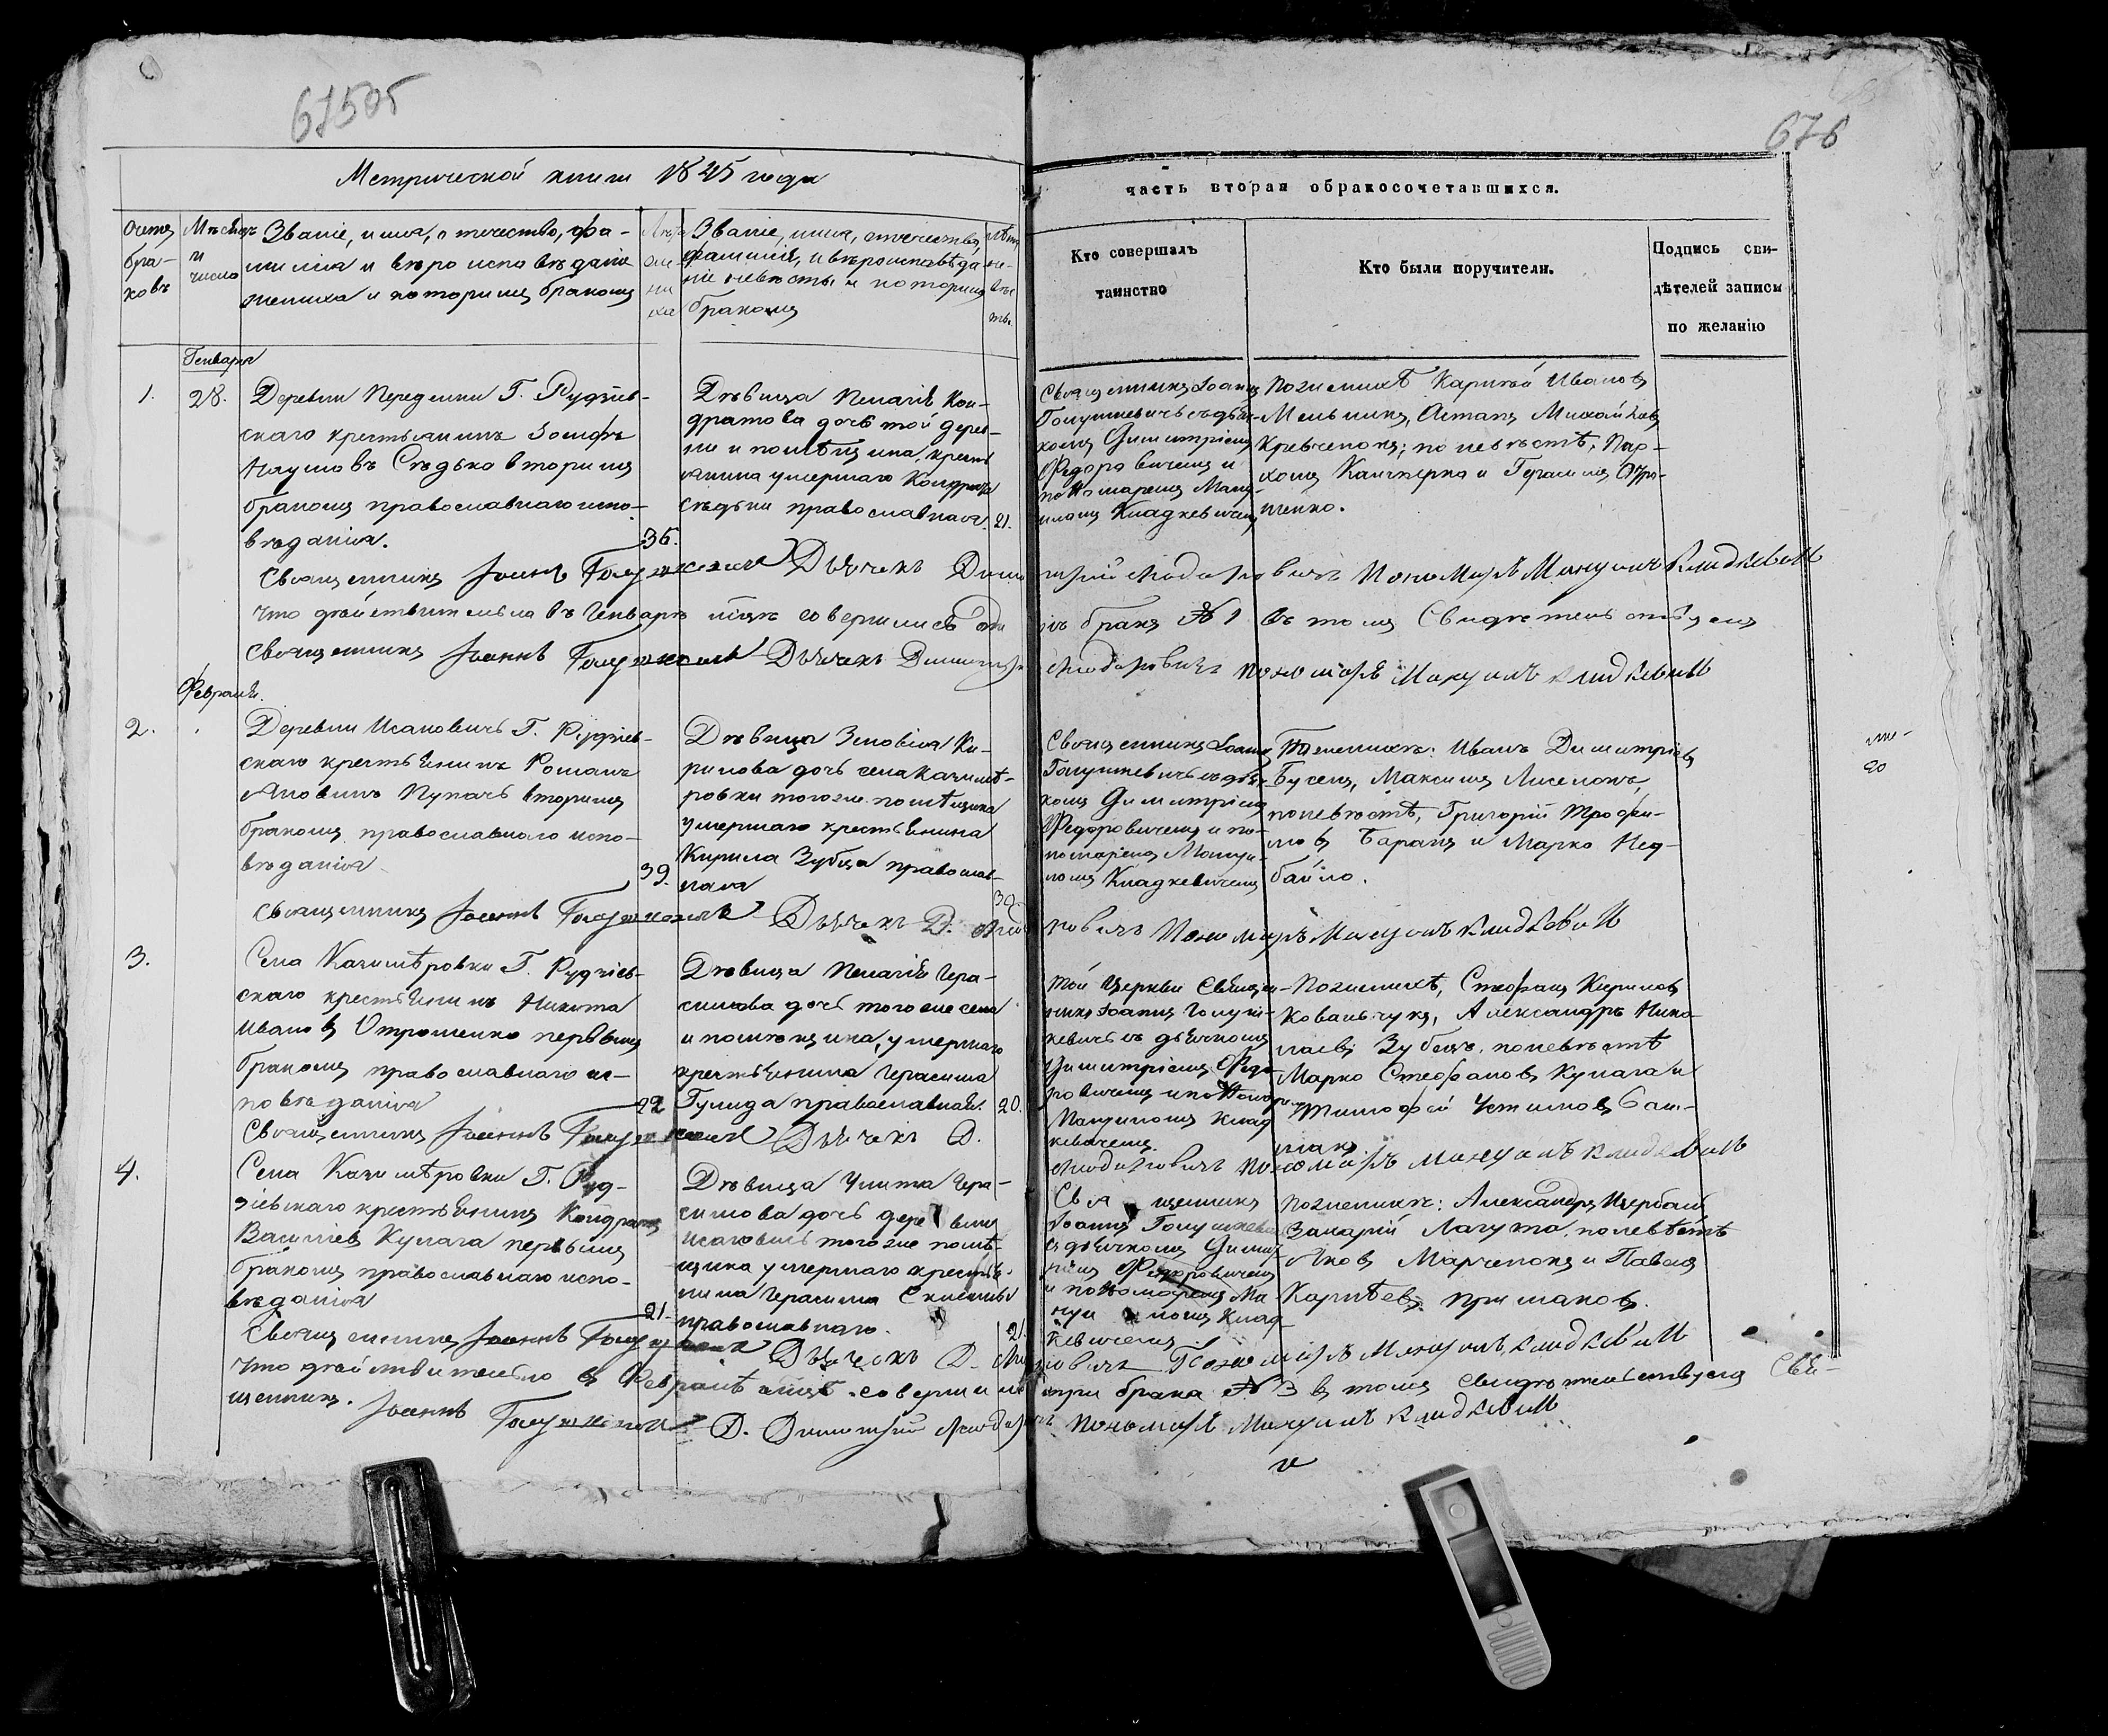 676
Метрической книги 1845 года
часть вторая обракосочетавшихся.
Счетъ бра-ковъ
Мѣсяцъ и число
Званіе, имя, отечество, фа-
милія и вѣроисповѣданіе
жениха и которимъ бракомъ
Лѣта же ни ха
Званіе, имя, отечество,
фамилія, и вѣроисповѣда
ніе невѣсты и которимъ
бракомъ
лѣта не- вѣс ты.
Кто совершалъ
таинство
Кто были поручители.
Подпись сви-
дѣтелей записи
по желанію
Генваря
1.
28.
Деревни Г. Рудзіев-
скаго крестьянинъ Іосифъ
Наумовъ Сѣдько вторимъ
бракомъ православнаго испо-
вѣданія.
36.
Дѣвица Пелагія Кон-
дратова дочь той дерев-
ни и помѣщика, кресть
янина умершаго Кондрата
православная.
21.
Священникъ Іоаннъ
Голушкевичъ съ дьяч-
комъ Димитріемъ
Федоровичемъ и
пономаремъ Ману-
иломъ Кладкевичемъ
По женихѣ Иванов
Мельникъ, Остапъ Михайловъ
Кревченокъ; по невѣстѣ, Пар-
хомъ и Герасимъ
Священникъ Іоаннъ Голушкевичъ Дьячекъ Димитрій Феодоровичъ Пономарь Мануилъ Кладкевичъ
что дѣйствительно въ Генварѣ мцѣ совершился одинъ бракъ № 1 въ томъ Свидѣтельствуемъ
Священникъ Іоаннъ Голушкевичъ Дьячекъ Димитрій Феодоровичъ Пономарь Мануилъ Кладкевичъ
Февраля.
2.
Деревни Исаковичъ Г. Рудзіев-
скаго крестьянинъ Романъ
Яковлевъ Пугачъ вторимъ
бракомъ православнаго испо-
вѣданія
39.
Дѣвица Зеновія Ки-
рилова дочь села Казимѣ-
ровки того же помѣщика
умершаго крестьянина
Кирила Зубца православ-
ная
Священникъ Іоаннъ
Голушкевичъ съ дьяч-
комъ Димитріемъ
Федоровичемъ и по-
номаремъ Мануи-
ломъ Кладкевичемъ
Иванъ Димитріевъ
Максимъ
по невѣстѣ, Григорій Трофи-
мовъ Баранъ и Марко Нед-
байло.
Священникъ Іоаннъ Голушкевичъ Дьячекъ Д. Феодоровичъ Пономарь Мануилъ Кладкевичъ
3.
Села Казимѣровки Г. Рудзіев-
скаго крестьянинъ Никита
Ивановъ Отрошенко первымъ
бракомъ православнаго ис-
повѣданія
22
Дѣвица Пелагія Гера-
симова дочь того же села
и помѣщика, умершаго
крестьянина Герасима
православная.
20.
той церкви Священ-
никъ Іоаннъ Голуш-
кевичъ съ дьячкомъ
Димитріемъ Федо-
ровичемъ и понома-
ремъ Мануиломъ Клад
кевичемъ
По женихѣ, Стефанъ Кириловъ
Ковальчукъ, Александръ Нико-
лаевъ Зубецъ, по невѣстѣ
Марко Стефановъ Кулага и
Тимофей Устимовъ
Священникъ Іоаннъ Голушкевичъ Дьячекъ Д. Феодоровичъ Пономарь Мануилъ Кладкевичъ
4.
Села Казимѣровки Г. Руд-
зіевскаго крестьянинъ Кондратъ
Василіев Кулага первымъ
бракомъ православнаго испо-
вѣданія
21.
Дѣвица Улита Гера-
симова дочь деревни
Исаковичъ того же помѣ-
щика умершаго крестья-
нина Герасима
православнаго.
21.
Священникъ
Іоаннъ Голушкевичъ
съ дьячкомъ Димит-
ріемъ Федоровичемъ
и пономаремъ Ма-
нуиломъ Клад-
кевичемъ
По женихѣ: Александръ Щербань
Захарій Лагута, по невѣстѣ
Яковъ Марченокъ и Павелъ
Примаковъ.
Священникъ Іоаннъ Голушкевичъ Дьячекъ Д. Феодоровичъ Пономарь Мануилъ Кладкевичъ
что дѣйствительно въ Февралѣ мцѣ совершились три брака № 3 въ томъ свидѣтельствуемъ Свя-
щенникъ. Іоаннъ Голушкевичъ Д. Димитрій Феодоровичъ Пономарь Мануилъ Кладкевичъ